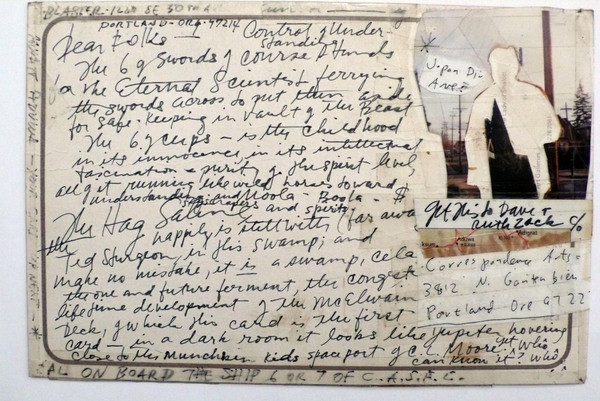 PORTLAND - ORE - 97214
Dear Folks — Control of Under-
standing
The 6 of Swords of course & Hands
or The Eternal Scientist ferrying
the swords across to put them aside
for safe-keeping in vault of the Beast
The 6 of cups — is the childhood
in its innocence, in its intellectual
fascination & purity of the spirit level,
all get running like wild horses toward
understanding and Moola - Boola - $
The Hag Salens and spirits,
happily is still with (far away)
Ted Sturgeon, in his swamp; and
make no mistake, it is a swamp,
the one and future ferment, the
life time development of The McIlwain
Deck, of which this card is the first
card — in a dark room it looks like Jupiter hovering
close to the Munchkin kids space port of C. L. Moore, yet who
can know it? Who
AL ON BOARD THE SHIP 6 OR 7 OF C.A.S.E.C.
get this to Dave &
Ruth Zack c/o
Correspondence Arts -
3812 N.
Portland Ore 97 22